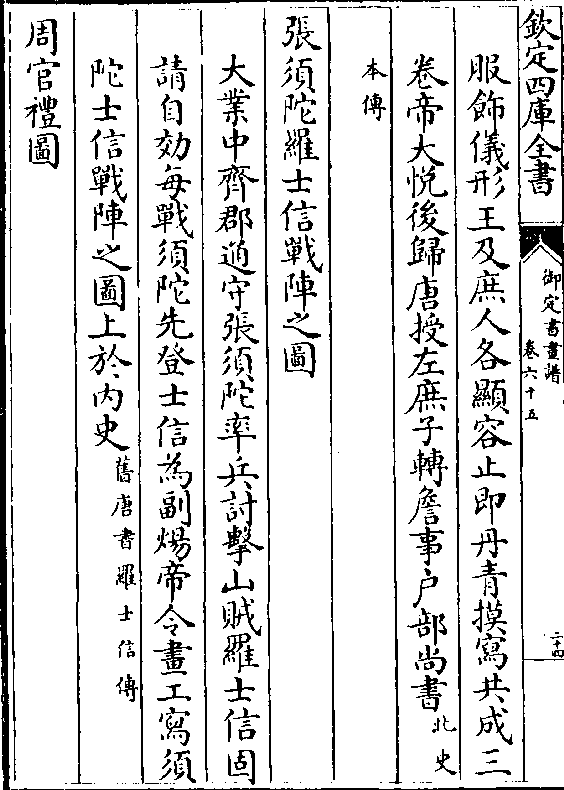 欽定四庫全書
御定書畫譜
卷六十五
二十四
服飾儀形王及庶人各顯容止即丹青摸寫共成三
卷帝大悅後歸唐授左庶子轉詹事户部尚書北史
本傳
張須陀羅士信戰陣之圖
大業中齊郡通守張須陀率兵討擊山賊羅士信固
請自効每戰須陀先登士信為副煬帝令畫工寫須
陀士信戰陣之圖上於内史舊唐書羅士信傳
周官禮圖